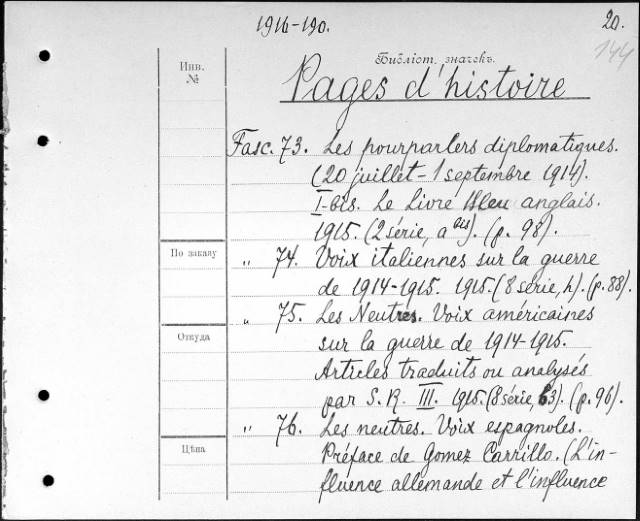 1916-190.
20.
144
Инв. №
Библіот. значекъ.
Pages d'histoire
Fasc. 73. Les pourparlers diplomatiques.
(20 juillet - 1 septembre 1914).
I-bis. Le Livre Bleu anglais.
1915. (2 série, a bis). (p. 98).
" 74. Voix italiennes sur la guerre
По заказу
de 1914-1915. 1915. (8 série, h). (p. 88).
" 75. Les Neutres. Voix américaines
Откуда
sur la guerre de 1914-1915.
Articles traduits ou analysés
par S. R. III. 1915. (8 série, 63). (p. 96).
" 76. Les neutres. Voix espagnoles.
Цѣна
Préface de Gomez Carrillo. (L'in-
fluence allemande et l'influence